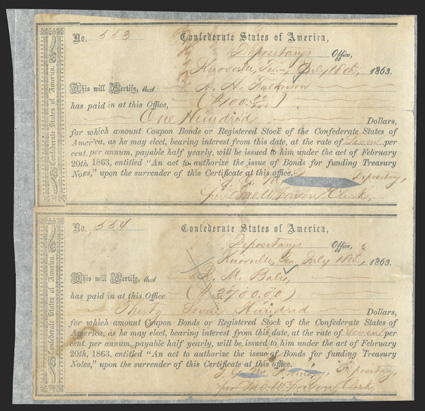 No. 553 Confederate States of America,
Depositary's Office,
Knoxville, Tenn July 18th, 1863.
This will Certify, that
has paid in at this Office, ($100.00)
One Hundred Dollars,
for which amount Coupon Bonds or Registered Stock of the Confederate States of
America, as may elect, bearing interest from this date, at the rate of Seven per
cent. per annum, payable half yearly, will be issued to him under the act of February
20th, 1863, entitled "An act to authorize the issue of Bonds for funding Treasury
Notes," upon the surrender of this Certificate at this office.
Depositary,
Clerk.
Confederate States of America.
No. 554 Confederate States of America,
Depositary's Office,
Knoxville, July 18th, 1863.
This will Certify, that M. Bales
has paid in at this Office
Thirty Seven Hundred Dollars,
for which amount Coupon Bonds or Registered Stock of the Confederate States of
America, as may elect, bearing interest from this date, at the rate of Seven per
cent. per annum, payable half yearly, will be issued to him under the act of February
20th, 1863, entitled "An act to authorize the issue of Bonds for funding Treasury
Notes," upon the surrender of this Certificate at this office.
Depositary
Clerk
Confederate States of America.